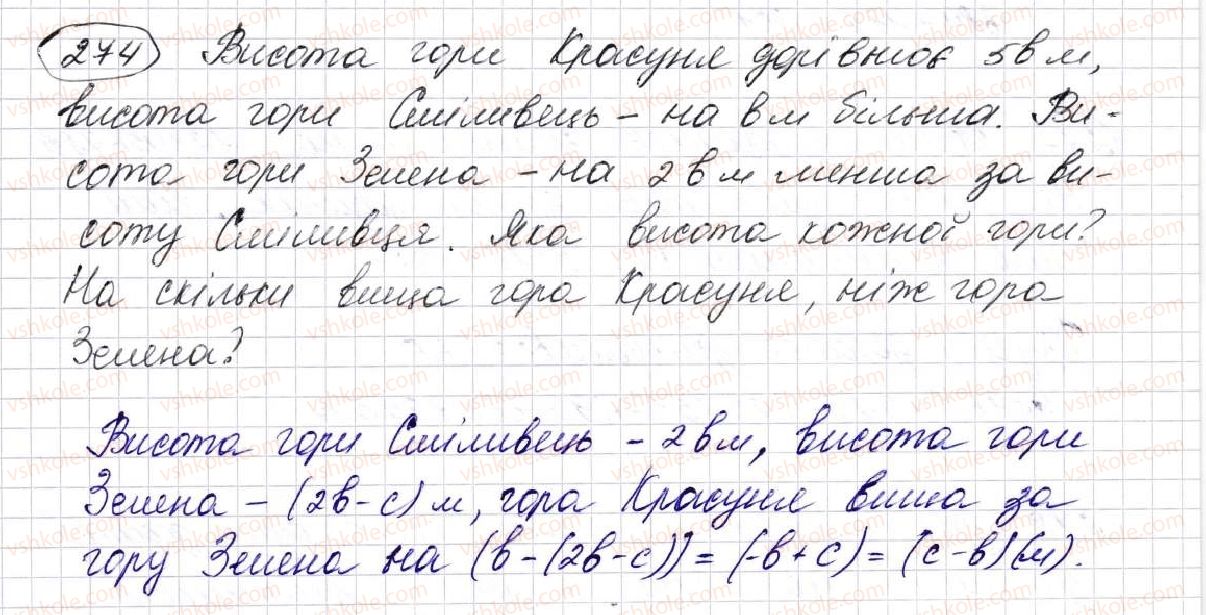 274 Висота гори Красуня дорівнює 5в м,
висота гори Сміливець - на в м більша. Ви-
сота гори Зелена - на 2в м менша за ви-
соту Сміливця. Яка висота кожної гори?
На скільки вища гора Красуня, ніж гора
Зелена?
Висота гори Сміливець - 2в м, висота гори
Зелена - (2в-с) м, гора Красуня вища за
гору Зелена на (в-(2в-с)) = (-в+с) = (с-в)(м).